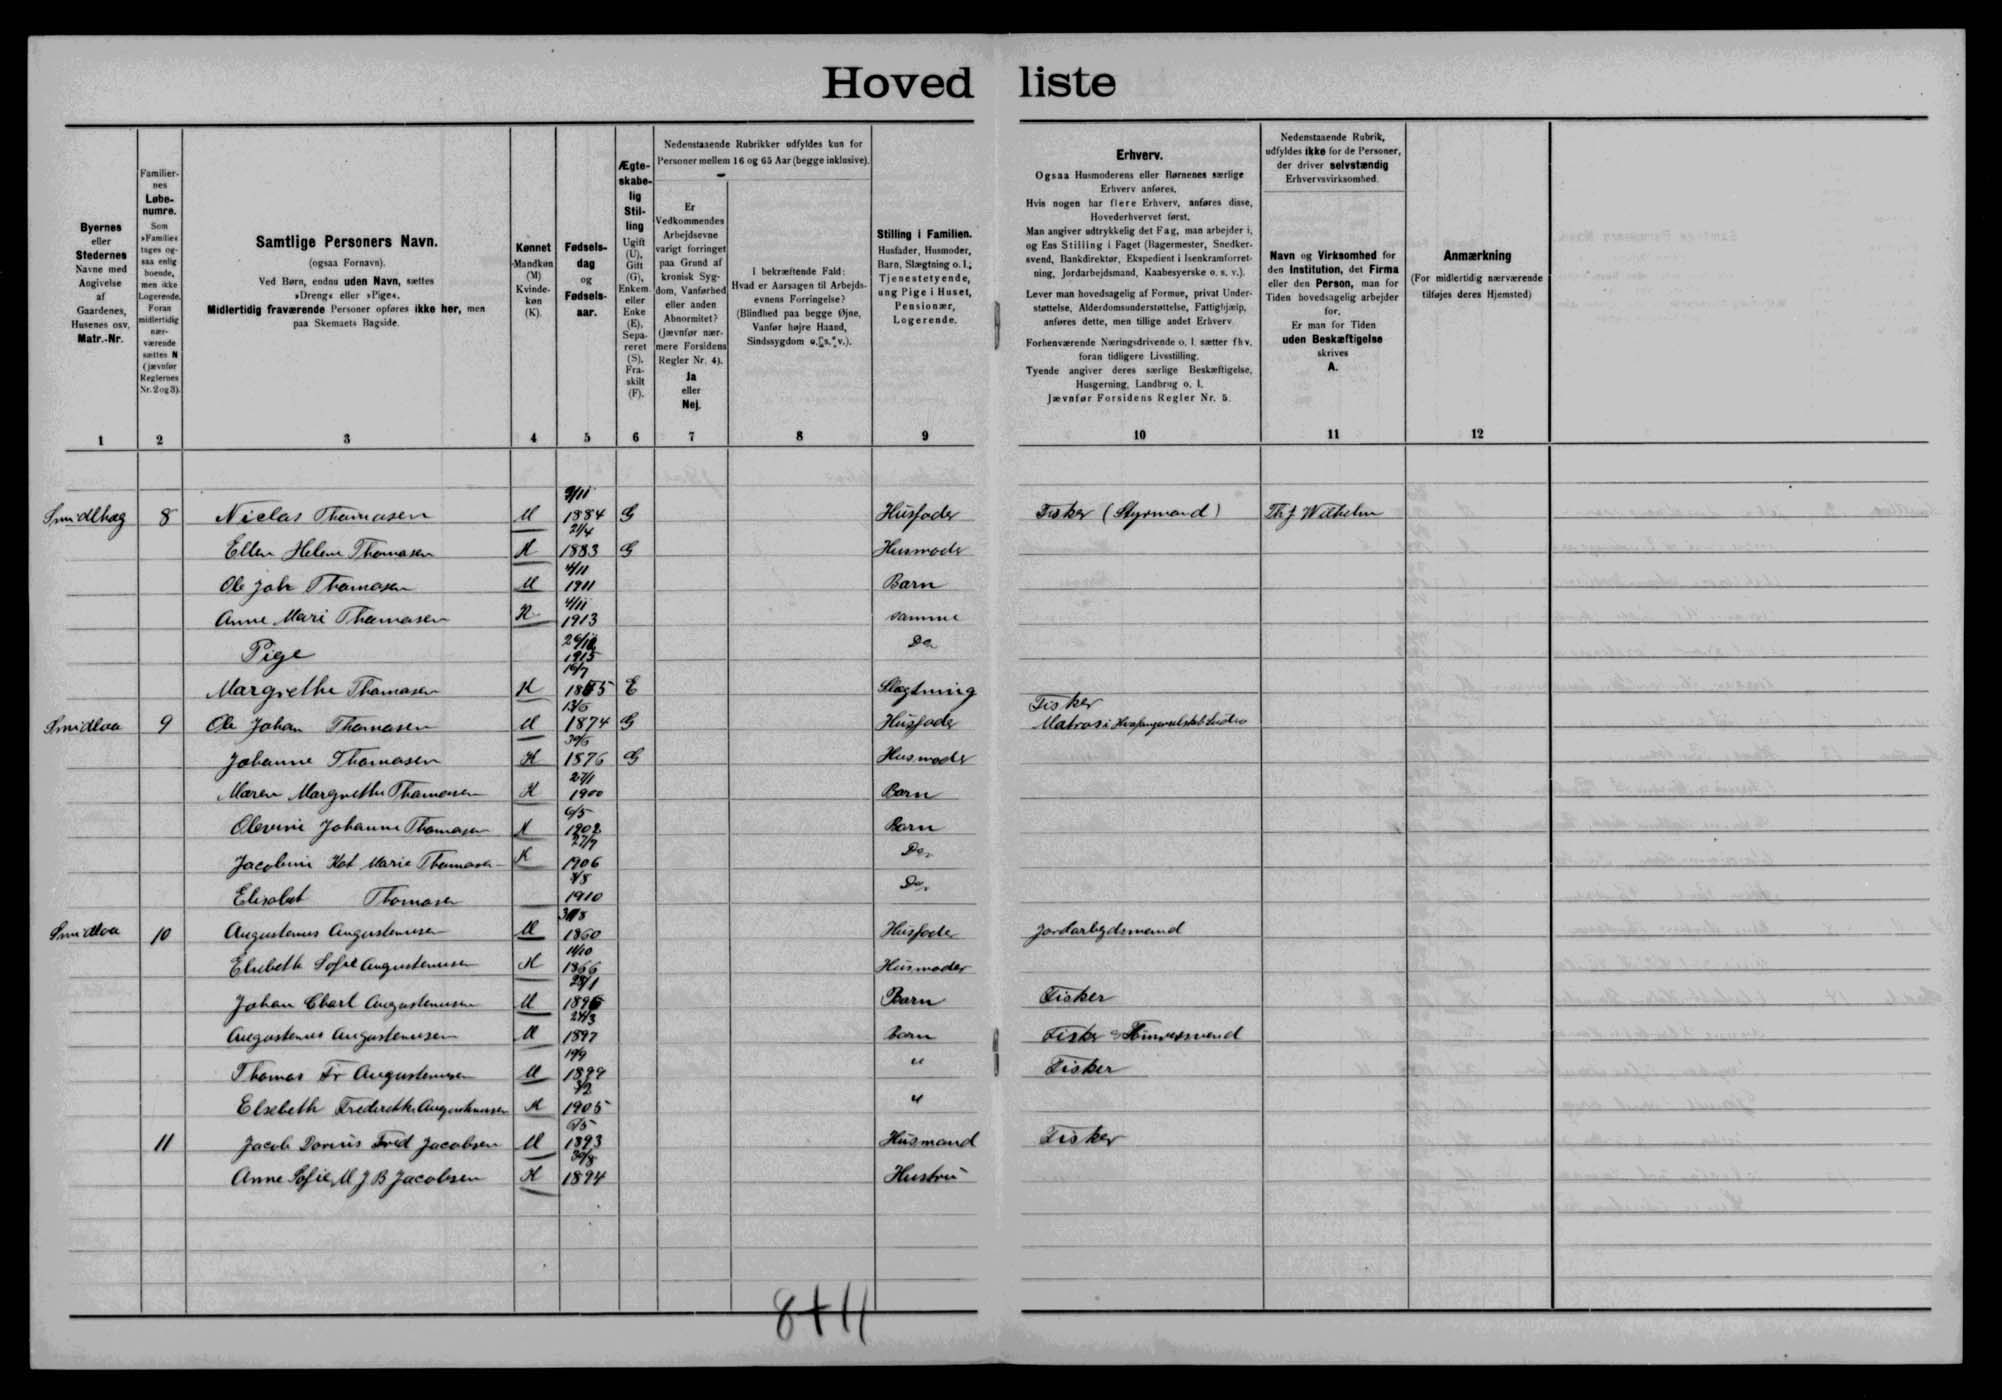 Hovedliste
Byernes
eller
Stedernes
Navne med
Angivelse
af
Gaardenes,
Husenes osv.
Matr.-Nr.
1
Familier-
nes
Løbe-
numre.
Som
»Familie«
tages og-
saa enlig
boende,
men ikke
Logerende.
Foran
midlertidig
nær-
værende
sættes N
(jævnfør
Reglernes
Nr. 2 og 3).
2
Samtlige Personers Navn.
(ogsaa Fornavn).
Ved Børn, endnu uden Navn, sættes
»Dreng« eller »Pige«.
Midlertidig fraværende Personer opføres ikke her, men
paa Skemaets Bagside.
3
Kønnet
Mandkøn
(M)
Kvinde-
køn
(K).
4
Fødsels-
dag
og
Fødsels-
aar.
5
Ægte-
skabe-
lig
Stil-
ling
Ugift
(U),
Gift
(G),
Enkem.
eller
Enke
(E),
Sepa-
reret
(S),
Fra-
skilt
(F).
6
Nedenstaaende Rubrikker udfyldes kun for
Personer mellem 16 og 65 Aar (begge inklusive).
Er
Vedkommendes
Arbejdsevne
varigt forringet
paa Grund af
kronisk Syg-
dom, Vanførhed
eller anden
Abnormitet?
(Jævnfør nær-
mere Forsidens
Regler Nr. 4).
Ja
eller
Nej.
7
I bekræftende Fald:
Hvad er Aarsagen til Arbejds-
evnens Forringelse?
(Blindhed paa begge Øjne,
Vanfør højre Haand,
Sindssygdom o. s. v.).
8
Stilling i Familien.
Husfader, Husmoder,
Barn, Slægtning o. l.;
Tjenestetyende,
ung Pige i Huset,
Pensionær,
Logerende.
9
Erhverv.
Ogsaa Husmoderens eller Børnenes særlige
Erhverv anføres.
Hvis nogen har flere Erhverv, anføres disse,
Hovederhvervet først.
Man angiver udtrykkelig det Fag, man arbejder i,
og Ens Stilling i Faget (Bagermester, Snedker-
svend, Bankdirektør, Ekspedient i Isenkramforret-
ning, Jordarbejdsmand, Kaabesyerske o. s. v.).
Lever man hovedsagelig af Formue, privat Under-
støttelse, Alderdomsunderstøttelse, Fattighjælp,
anføres dette, men tillige andet Erhverv.
Forhenværende Næringsdrivende o. l. sætter fhv.
foran tidligere Livsstilling.
Tyende angiver deres særlige Beskæftigelse,
Husgerning, Landbrug o. l.
Jævnfør Forsidens Regler Nr. 5.
10
Nedenstaaende Rubrik,
udfyldes ikke for de Personer,
der driver selvstændig
Erhvervsvirksomhed.
Navn og Virksomhed for
den Institution, det Firma
eller den Person, man for
Tiden hovedsagelig arbejder
for.
Er man for Tiden
uden Beskæftigelse
skrives
A.
11
Anmærkning
(For midlertidig nærværende
tilføjes deres Hjemsted)
12
8 Niclas Thomasen M 1884 G Husfader Fisker (Styrmand) Th J Wilhelm
Ellen Helene Thomasen K 21/4 1883 G Husmoder
Ole Joh Thomasen M 4/11 1911 Barn
Anne Mari Thomasen K 4/11 1913 samme
Pige 1915 Do
Margrethe Thomasen K E Slægtning
9 Ole Johan Thomasen M 13/6 1874 G Husfader Fisker Matros i
Johanne Thomasen K 30/5 1876 G Husmoder
Maren Margrethe Thomasen K 27/1 1900 Barn
Johanne Thomasen K 6/5 1902 Barn
Kat Marie Thomasen K 27/7 1906 Do.
Elisabet Thomasen 1910 Do.
10 Augustenus Augustenusen M 1860 Husfader Jordarbejdsmand
Elsebeth Sofie Augustenusen K 11/10 1866 Husmoder
Johan Charl Augustenusen M Barn Fisker
Augustenus Augustenusen M 24/3 1897 Barn Fisker
Thomas Fr Augustenusen M 19/9 1899 " Fisker
Elsebeth Frederikke Augustenusen K 3/2 1905 "
11 Jacob Dorius Fred Jacobsen M 6/5 1893 Husmand Fisker
Anne Sofie M J B Jacobsen K 30/8 1894 Hustru
8+11